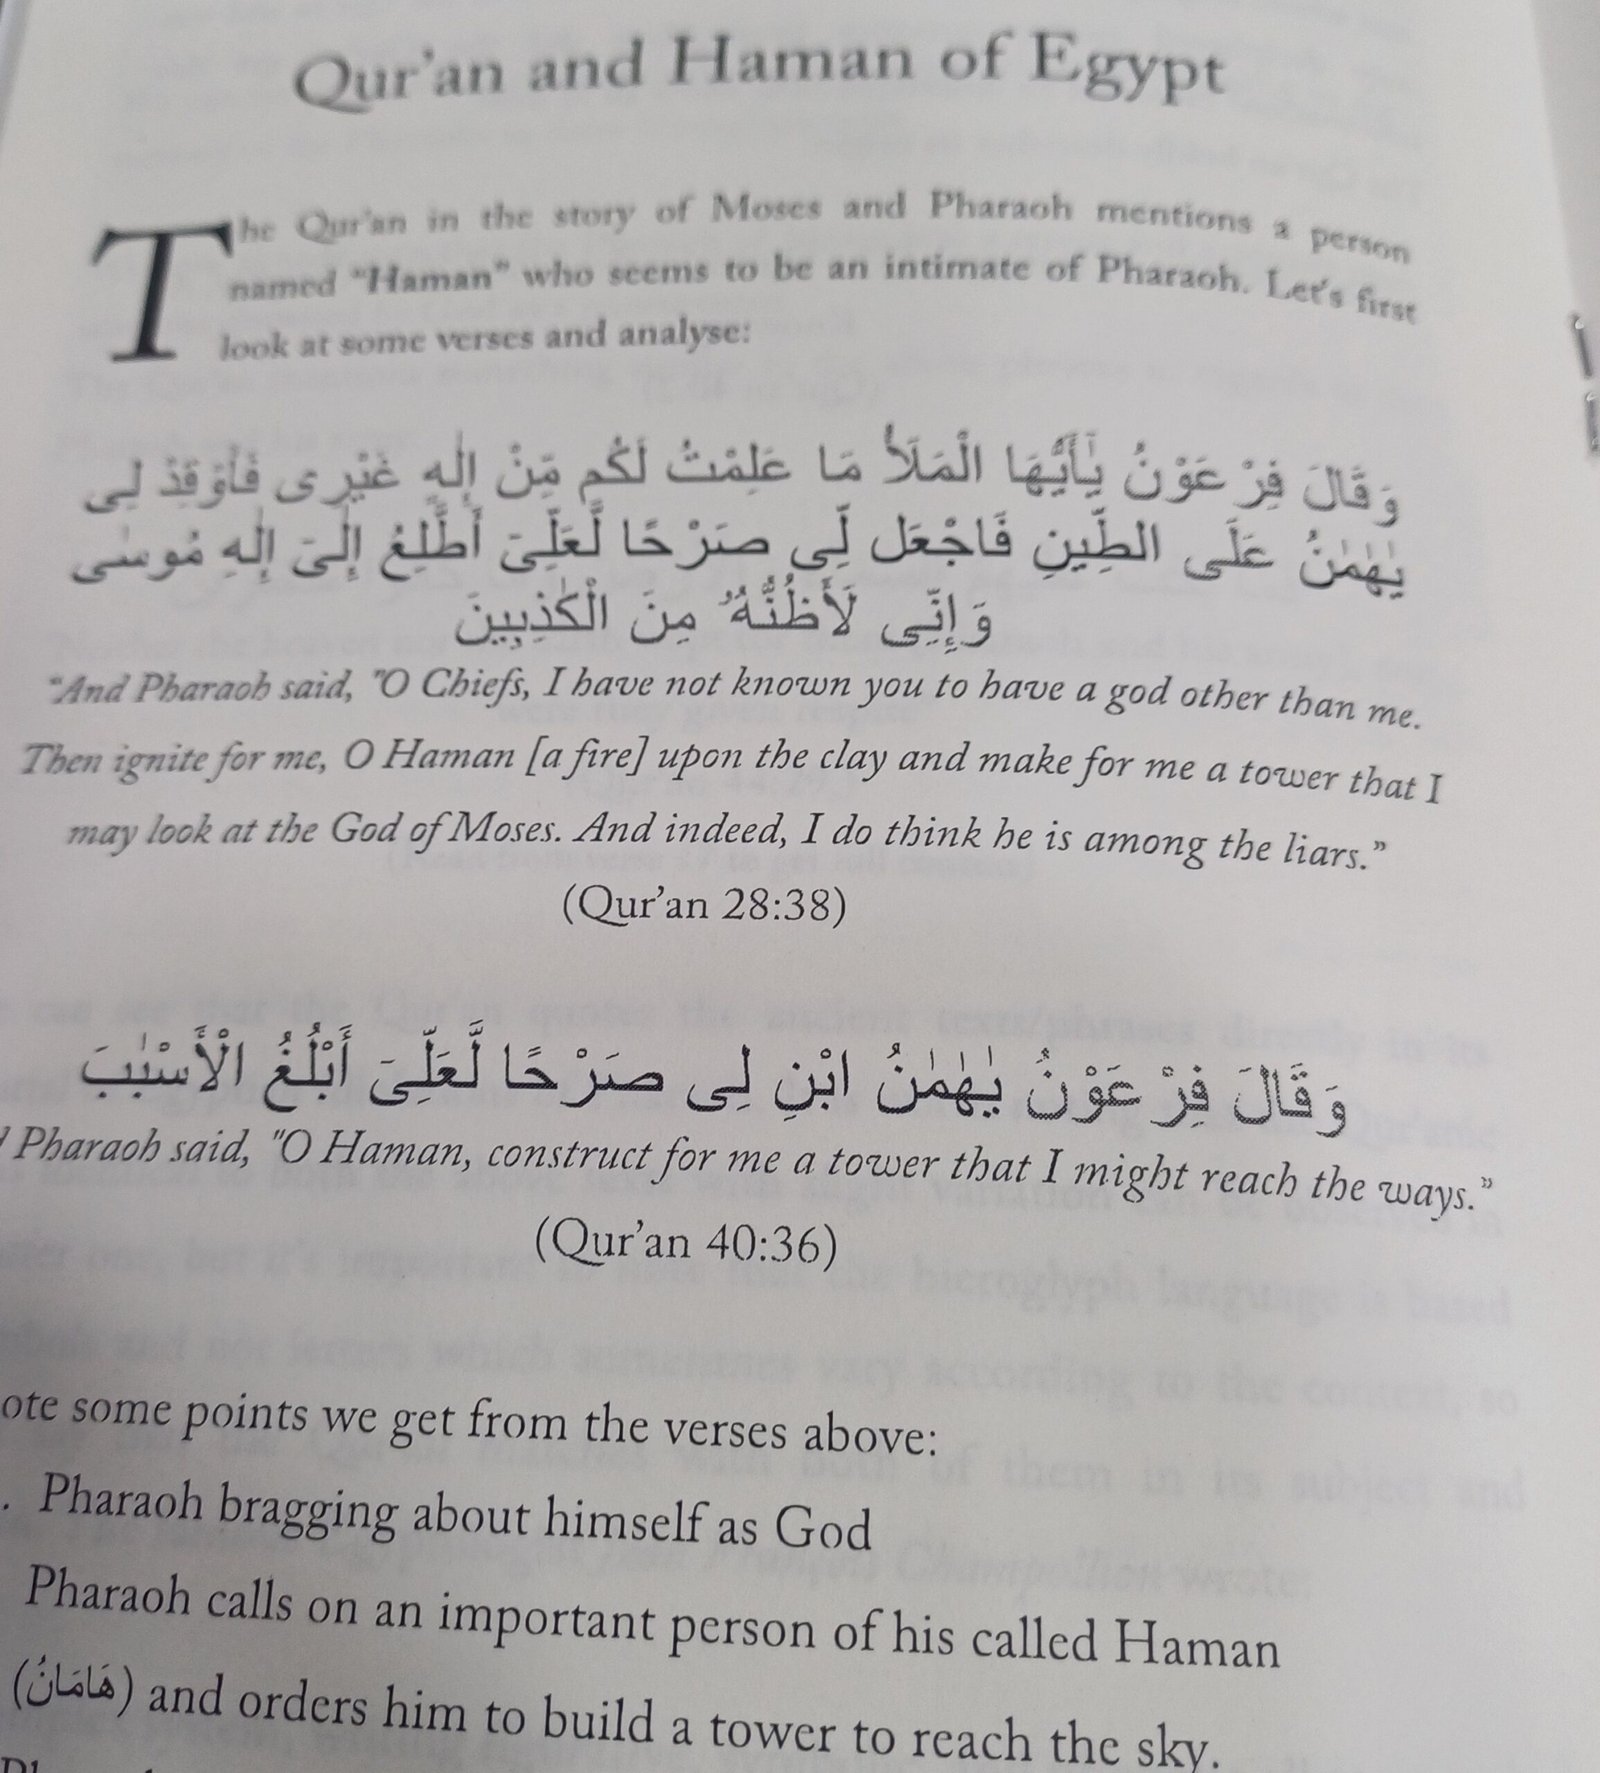 Qur'an and Haman of Egypt
The Qur'an in the story of Moses and Pharaoh mentions a person
named "Haman" who seems to be an intimate of Pharaoh. Let's first
look at some verses and analyse:
وَقَالَ فِرْعَوْنُ يٰٓأَيُّهَا الْمَلَأُ مَا عَلِمْتُ لَكُم مِّنْ إِلٰهٍ غَيْرِى فَأَوْقِدْ لِى
يٰهٰمٰنُ عَلَى الطِّينِ فَاجْعَل لِّى صَرْحًا لَّعَلِّىٓ أَطَّلِعُ إِلٰىٓ إِلٰهِ مُوسٰى
وَإِنِّى لَأَظُنُّهُۥ مِنَ الْكٰذِبِينَ
"And Pharaoh said, "O Chiefs, I have not known you to have a god other than me.
Then ignite for me, O Haman [a fire] upon the clay and make for me a tower that I
may look at the God of Moses. And indeed, I do think he is among the liars."
(Qur'an 28:38)
وَقَالَ فِرْعَوْنُ يٰهٰمٰنُ ابْنِ لِى صَرْحًا لَّعَلِّىٓ أَبْلُغُ الْأَسْبٰبَ
Pharaoh said, "O Haman, construct for me a tower that I might reach the ways."
(Qur'an 40:36)
ote some points we get from the verses above:
. Pharaoh bragging about himself as God
Pharaoh calls on an important person of his called Haman
(هَامَانُ) and orders him to build a tower to reach the sky.